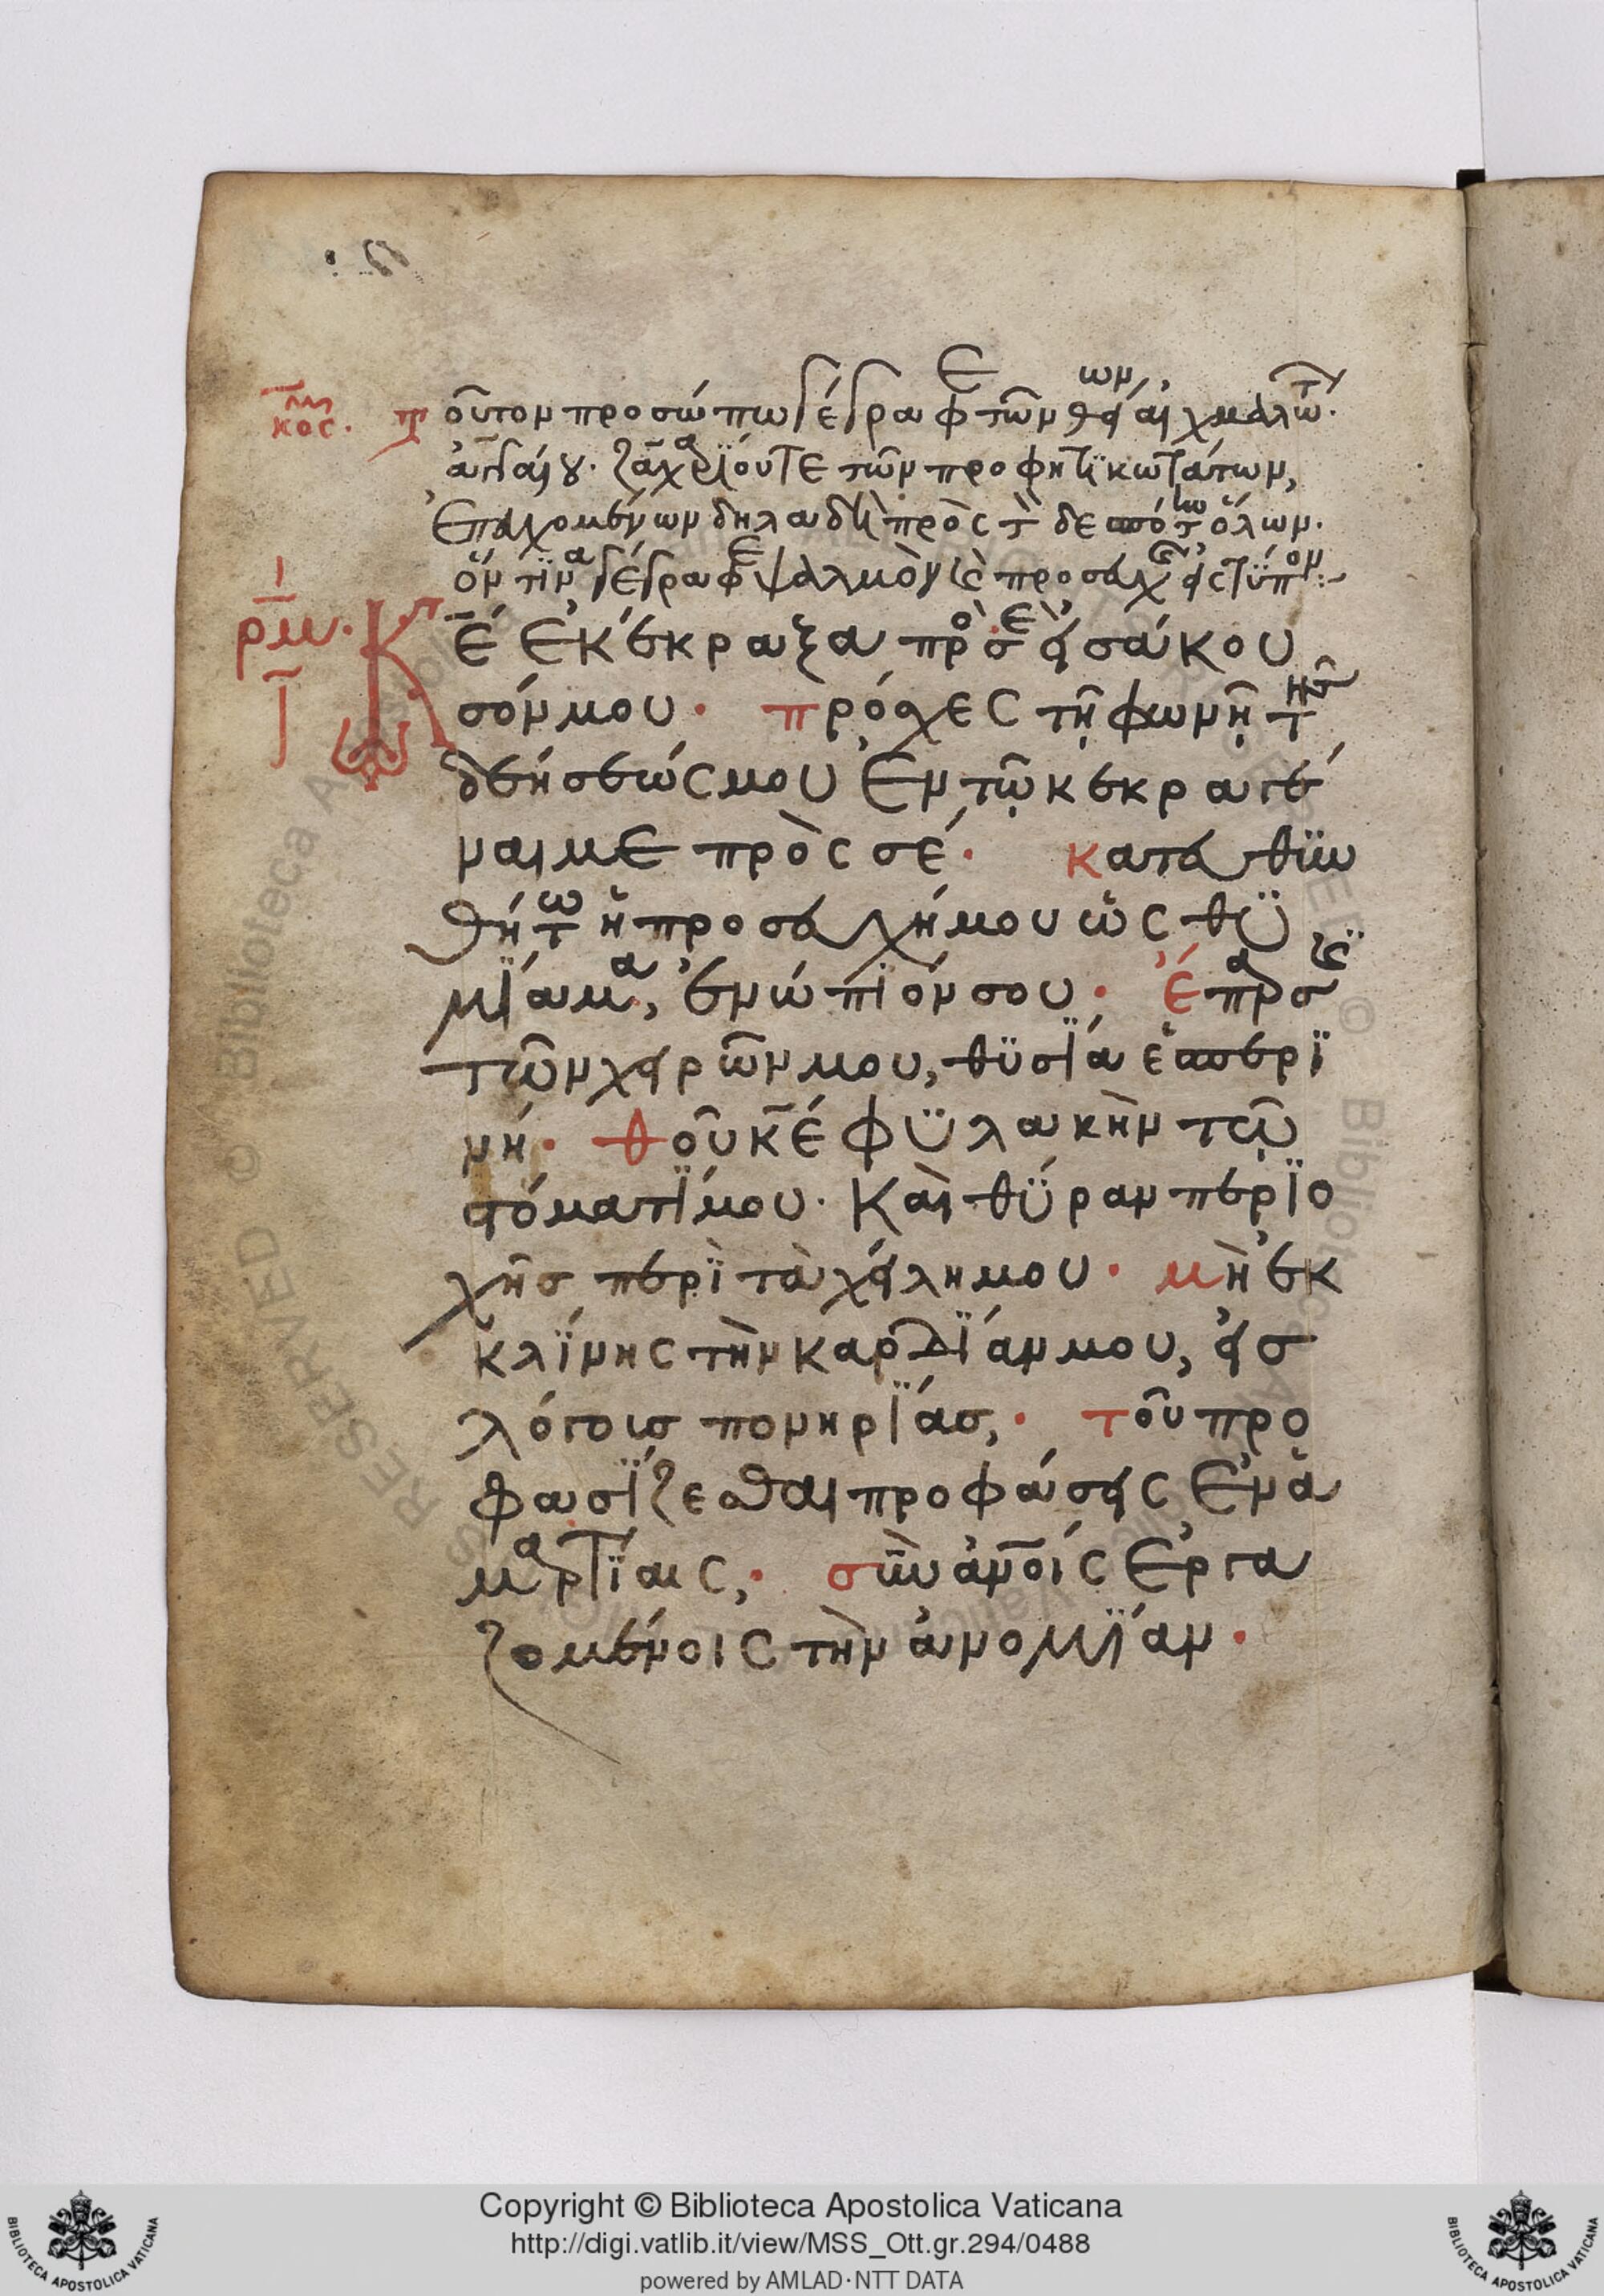 οὗτον προσώπω γέγραφε τῶν
ζαχαρίου τε τῶν προφητικωτάτων,
ἐπευχομένων δηλαδὴ πρὸς τὸν δεσπότην τῶν ὅλων.
ὅν τινα γέγραφε ψαλμὸν καὶ προσευχῆς τύπον:
ρμ. Κ̅ε̅ ἐκέκραξα πρὸς σὲ εἰσάκου
σόν μου· πρόσχες τῆ φωνῆ τῆς
δεήσεώς μου ἐν τῶ κεκραγέ
ναι με πρὸς σέ· κατευθυν
θήτω ἡ προσευχή μου ὡς θυ
μίαμα, ἐνώπιόν σου· ἔπαρσις
τῶν χειρῶν μου, θυσία ἑσπερι
νή· θοῦ κ̅ε̅ φυλακὴν τῶ
στόματί μου· καὶ θύραν περιο
χῆς περὶ τὰ χείλη μου· μὴ ἐκ
κλίνης τὴν καρδίαν μου, εἰς
λόγοις πονηρίας,· τοῦ προ
φασίζεσθαι προφάσεις ἐν ἁ
μαρτίαις,· σὺν ἀνοίς ἐργα
ζομένοις τὴν ἀνομίαν·
Copyright © Biblioteca Apostolica Vaticana
http://digi.vatlib.it/view/MSS_Ott.gr.294/0488
powered by AMLAD·NTT DATA
BIBLIOTECA APOSTOLICA VATICANA
BIBLIOTECA APOSTOLICA VATICANA